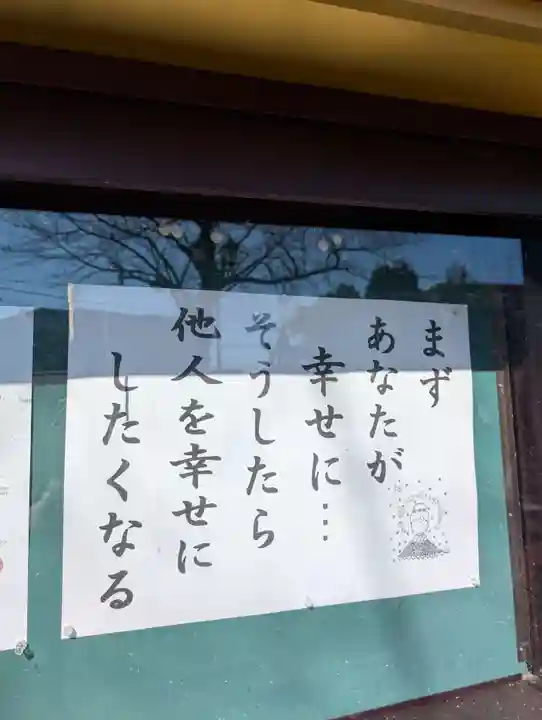 まず
あなたが
幸せに…
そうしたら
他人を幸せに
したくなる